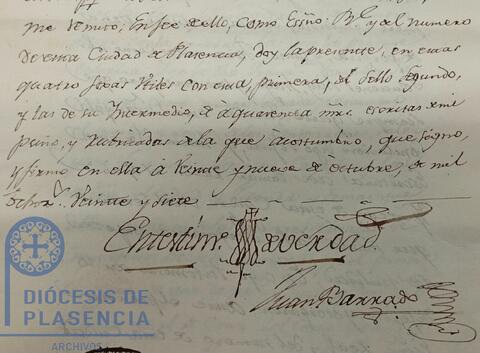 me remito, En fee de ello, como Essno. Rl. y del numero
de esta Ciudad de Plasencia, doy la presente, en estas
quatro foxas utiles con esta, primera, del Sello Segundo,
y las de su Intermedio, de a quarenta mrs. escritas de mi
puño, y rubricadas de la que acostumbro, que signo,
y firmo en ella à Veinte y nueve de octubre, de mil
ochos. Veinte y siete
En testimo. de verdad
Juan Barrado
DIÓCESIS DE
PLASENCIA
ARCHIVOS